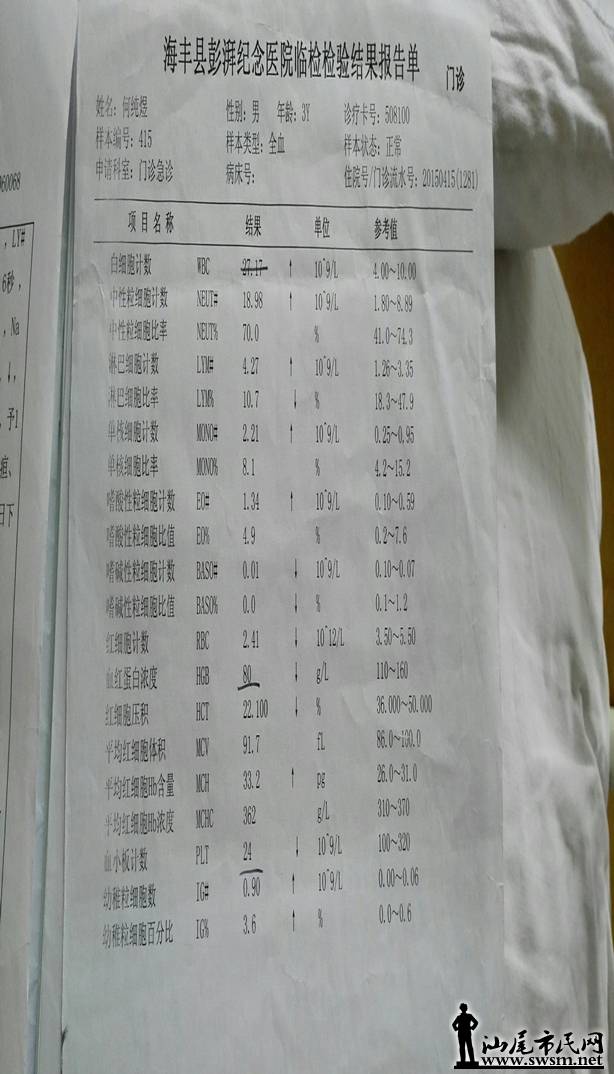 海丰县彭湃纪念医院临检检验结果报告单 门诊
姓名: 何纯煜 性别: 男 年龄: 3Y 诊疗卡号: 508100
样本编号: 415 样本类型: 全血 样本状态: 正常
申请科室: 门诊急诊 病床号: 住院号/门诊流水号: 20150415(1281)
项目名称 结果 单位 参考值
白细胞计数 WBC 27.17 ↑ 10^9/L 4.00~10.00
中性粒细胞计数 NEUT# 18.98 ↑ 10^9/L 1.80~8.89
中性粒细胞比率 NEUT% 70.0 % 41.0~74.3
淋巴细胞计数 LYM# 4.27 ↑ 10^9/L 1.26~3.35
淋巴细胞比率 LYM% 10.7 ↓ % 18.3~47.9
单核细胞计数 MONO# 2.21 ↑ 10^9/L 0.25~0.95
单核细胞比率 MONO% 8.1 % 4.2~15.2
嗜酸性粒细胞计数 EO# 1.34 ↑ 10^9/L 0.10~0.59
嗜酸性粒细胞比值 EO% 4.9 % 0.2~7.6
嗜碱性粒细胞计数 BASO# 0.01 ↓ 10^9/L 0.10~0.07
嗜碱性粒细胞比值 BASO% 0.0 ↓ % 0.1~1.2
红细胞计数 RBC 2.41 ↓ 10^12/L 3.50~5.50
血红蛋白浓度 HGB 80 ↓ g/L 110~160
红细胞压积 HCT 22.100 ↓ % 36.000~50.000
平均红细胞体积 MCV 91.7 fL 86.0~100.0
平均红细胞Hb含量 MCH 33.2 ↑ pg 26.0~31.0
平均红细胞Hb浓度 MCHC 362 g/L 310~370
血小板计数 PLT 24 ↓ 10^9/L 100~320
幼稚粒细胞数 IG# 0.90 ↑ 10^9/L 0.00~0.06
幼稚粒细胞百分比 IG% 3.6 ↑ % 0.0~0.6
060068
, LY#
6秒,
, Na
↓,
, 予1
日下
汕尾市民网
www.swsm.net